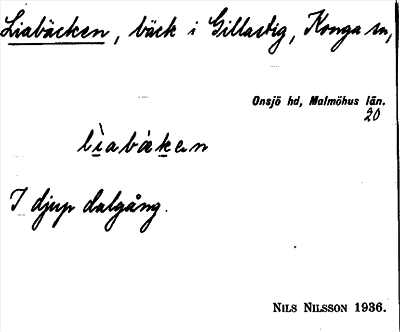 Liabäcken, bäck i Gillastig, Konga sn,
Onsjö hd, Malmöhus län.
20
lìabáken
I djup dalgång.
NILS NILSSON 1936.